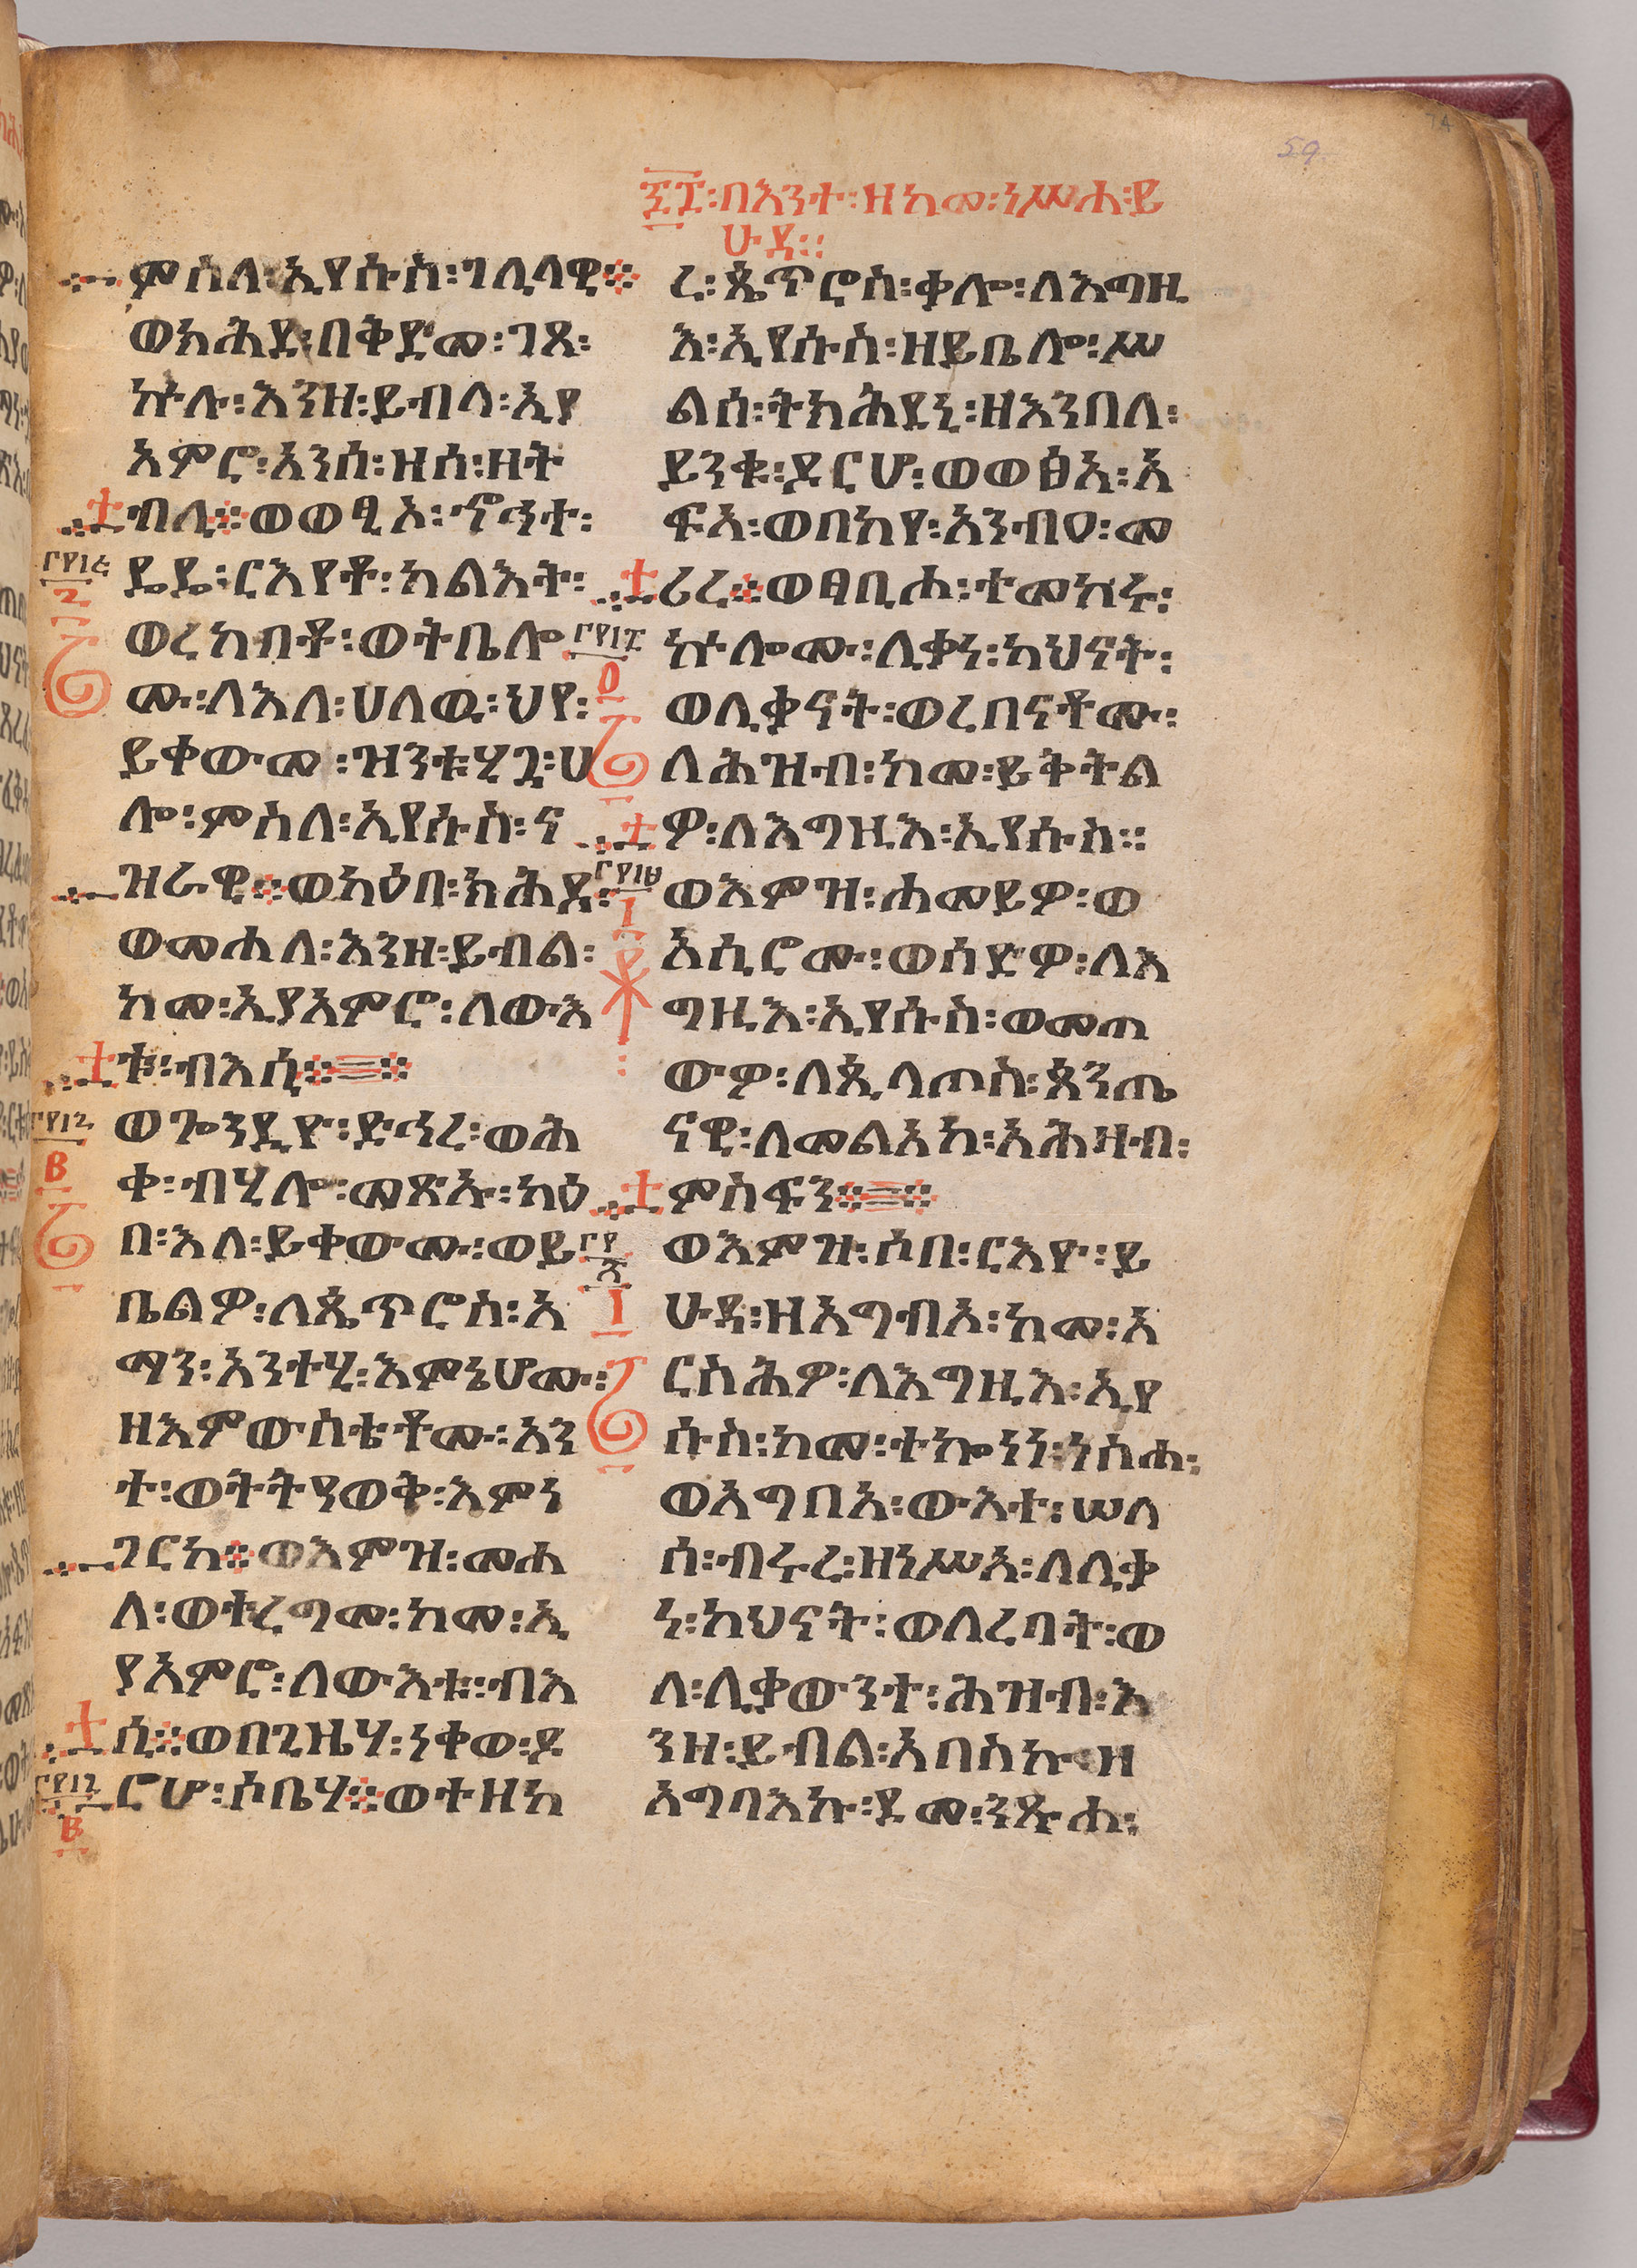 ፷፰፡በእንተ፡ዘከመ፡ነሥሐ፡ይ
ሁዳ፡፡
59
74
ምስለ፡ኢየሱስ፡ገሊላዊ፨
ወክሕደ፡በቅድመ፡ገጸ፡
ኵሉ፡እንዘ፡ይብላ፡ኢያ
አምሮ፡አንሰ፡ዝሰ፡ዘት
ብሊ፨ወወፂኦ፡ኆኅተ፡
ዴዴ፡ርእየቶ፡ካልእት፡
ወረከበቶ፡ወትቤሎ
ሙ፡ለእለ፡ሀለዉ፡ህየ፡
ይቀውመ፡ዝንቱሂ፡ሀ
ሎ፡ምስለ፡ኢየሱስ፡ና
ዝራዊ፨ወካዕበ፡ክሕደ፡
ወመሐለ፡እንዘ፡ይብል፡
ከመ፡ኢያአምሮ፡ለውእ
ቱ፡ብእሲ፨
ወጐንዲዮ፡ድኅረ፡ወሕ
ቀ፡ብሂሎ፡መጽኡ፡ካዕ
በ፡እለ፡ይቀውሙ፡ወይ
ቤልዎ፡ለጴጥሮስ፡አ
ማን፡አንተሂ፡እምኔሆሙ፡
ዘእምውስቴቶሙ፡አን
ተ፡ወትትዓወቅ፡እምነ
ገርከ፨ወእምዝ፡መሐ
ለ፡ወተረግመ፡ከመ፡ኢ
ያአምሮ፡ለውእቱ፡ብእ
ሲ፨ወበጊዜሃ፡ነቀወ፡ዶ
ሮሆ፡ሶቤሃ፨ወተዘከ
ረ፡ጴጥሮስ፡ቃሎ፡ለእግዚ
እ፡ኢየሱስ፡ዘይቤሎ፡ሥ
ልሰ፡ትክሕደኒ፡ዘእንበለ፡
ይንቁ፡ዶርሆ፡ወወፅአ፡አ
ፍአ፡ወበከየ፡አንብዐ፡መ
ሪረ፨ወፀቢሖ፡ተመከሩ፡
ኵሎሙ፡ሊቃነ፡ካህናት፡
ወሊቃናት፡ወረበናቶሙ፡
ለሕዝብ፡ከመ፡ይቅትል
ዎ፡ለእግዚእ፡ኢየሱስ፡፡
ወእምዝ፡ሐመይዎ፡ወ
አሲሮሙ፡ወሰድዎ፡ለእ
ግዚእ፡ኢየሱስ፡ወመጠ
ውዎ፡ለጲላጦስ፡ጰንጤ
ናዊ፡ለመልአከ፡አሕዛብ፡
ምስፍን፨
ወእምዝ፡ሶበ፡ርእዮ፡ይ
ሁዳ፡ዘአግብኦ፡ከመ፡አ
ርስሕዎ፡ለእግዚእ፡ኢየ
ሱስ፡ከመ፡ተኰነነ፡ነስሐ፡
ወአግበአ፡ውእተ፡ሠላ
ሰ፡ብሩረ፡ዘነሥአ፡ለሊቃ
ነ፡ካህናት፡ወለረባት፡ወ
ለ፡ሊቃውንተ፡ሕዝብ፡እ
ንዘ፡ይብል፡አበስኩ፡ዘ
አግባእኩ፡ደመ፡ንጹሐ፡